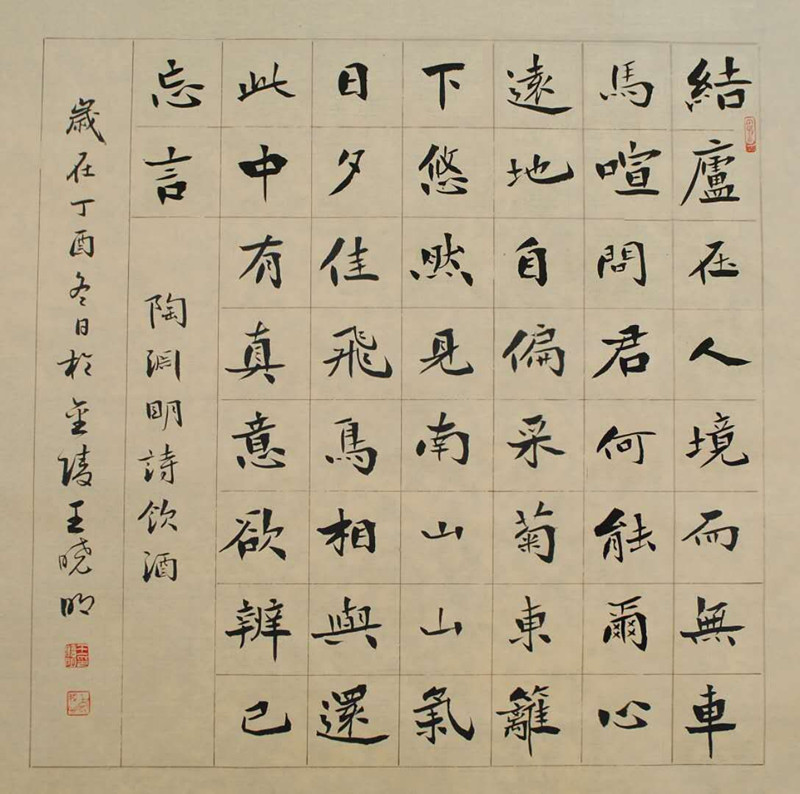 結廬在人境而無車
馬喧問君何能爾心
遠地自偏采菊東籬
下悠然見南山山氣
日夕佳飛鳥相與還
此中有真意欲辨已
忘言
陶淵明詩飲酒
歲在丁酉冬日於金陵王曉明